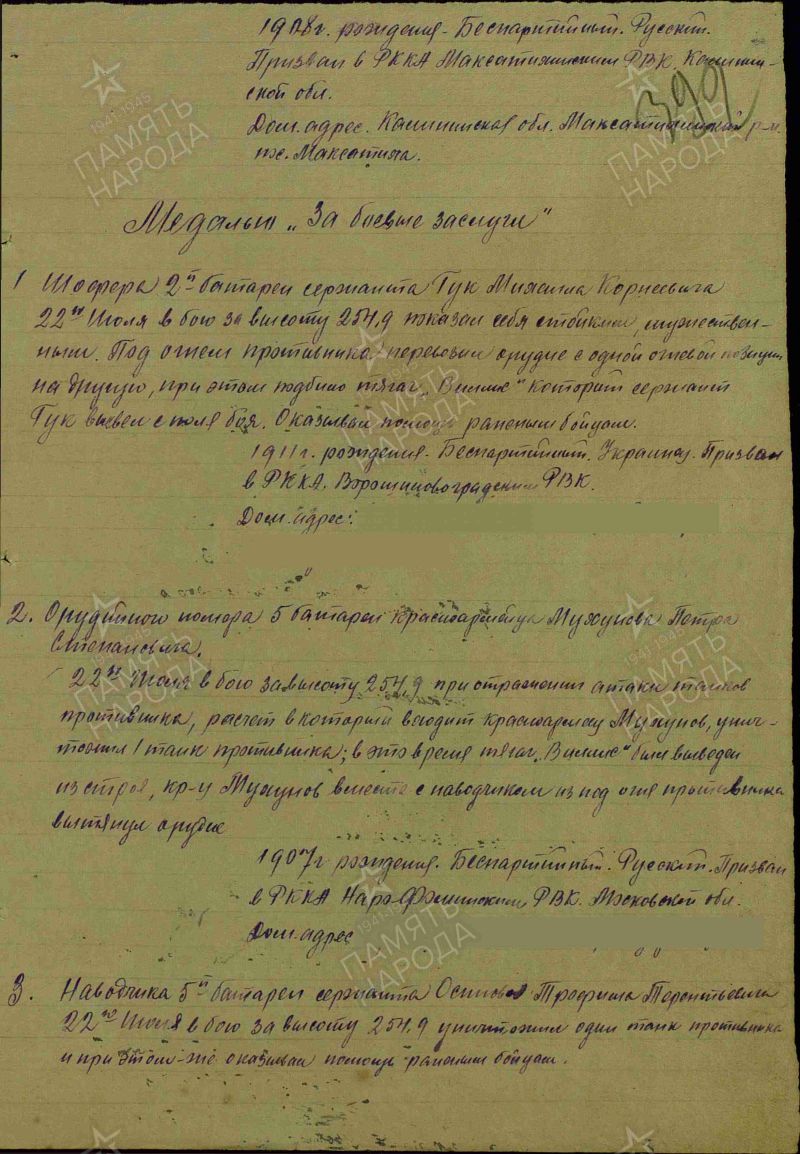 1908г. рождения. Беспартийный. Русский.
Призван в РККА Максатихинским РВК, Калинин-
ской обл.
399
Дом. адрес. Калининская обл. Максатихинский р-н.
пос. Максатиха.
Медалью „За боевые заслуги"
1 Шофера 2й батареи сержанта Гук Михаила Корнеевича
22го Июля в бою за высоту 254,9 показал себя стойким, мужествен-
ным. Под огнем противника перевозил орудие с одной огневой позиции
на другую, при этом подбило тягач „Виллис" который сержант
Гук вывел с поля боя. Оказывал помощь раненым бойцам.
1911г. рождения. Беспартийный. Украинец. Призван
в РККА. Ворошиловоградским РВК.
Дом. адрес:
2. Орудийного номера 5 батареи красноармейца Мухунова Петра
Степановича.
22го Июля в бою за высоту 254,9 при отражении атаки танков
противника, расчет в который входит красноармеец Мухунов, унич-
тожил 1 танк противника; в это время тягач „Виллис" был выведен
из строя, кр-ц Мухунов вместе с наводчиком из под огня противника
вытянул орудие
1907г рождения. Беспартийный. Русский. Призван
в РККА Наро-Фоминским РВК. Московской обл.
Дом. адрес
3. Наводчика 5й батареи сержанта Осипова Трофима Терентьевича
22го Июля в бою за высоту 254,9 уничтожил один танк противника
и при этом-же оказывал помощь раненым бойцам.
1941-1945
ПАМЯТЬ
НАРОДА